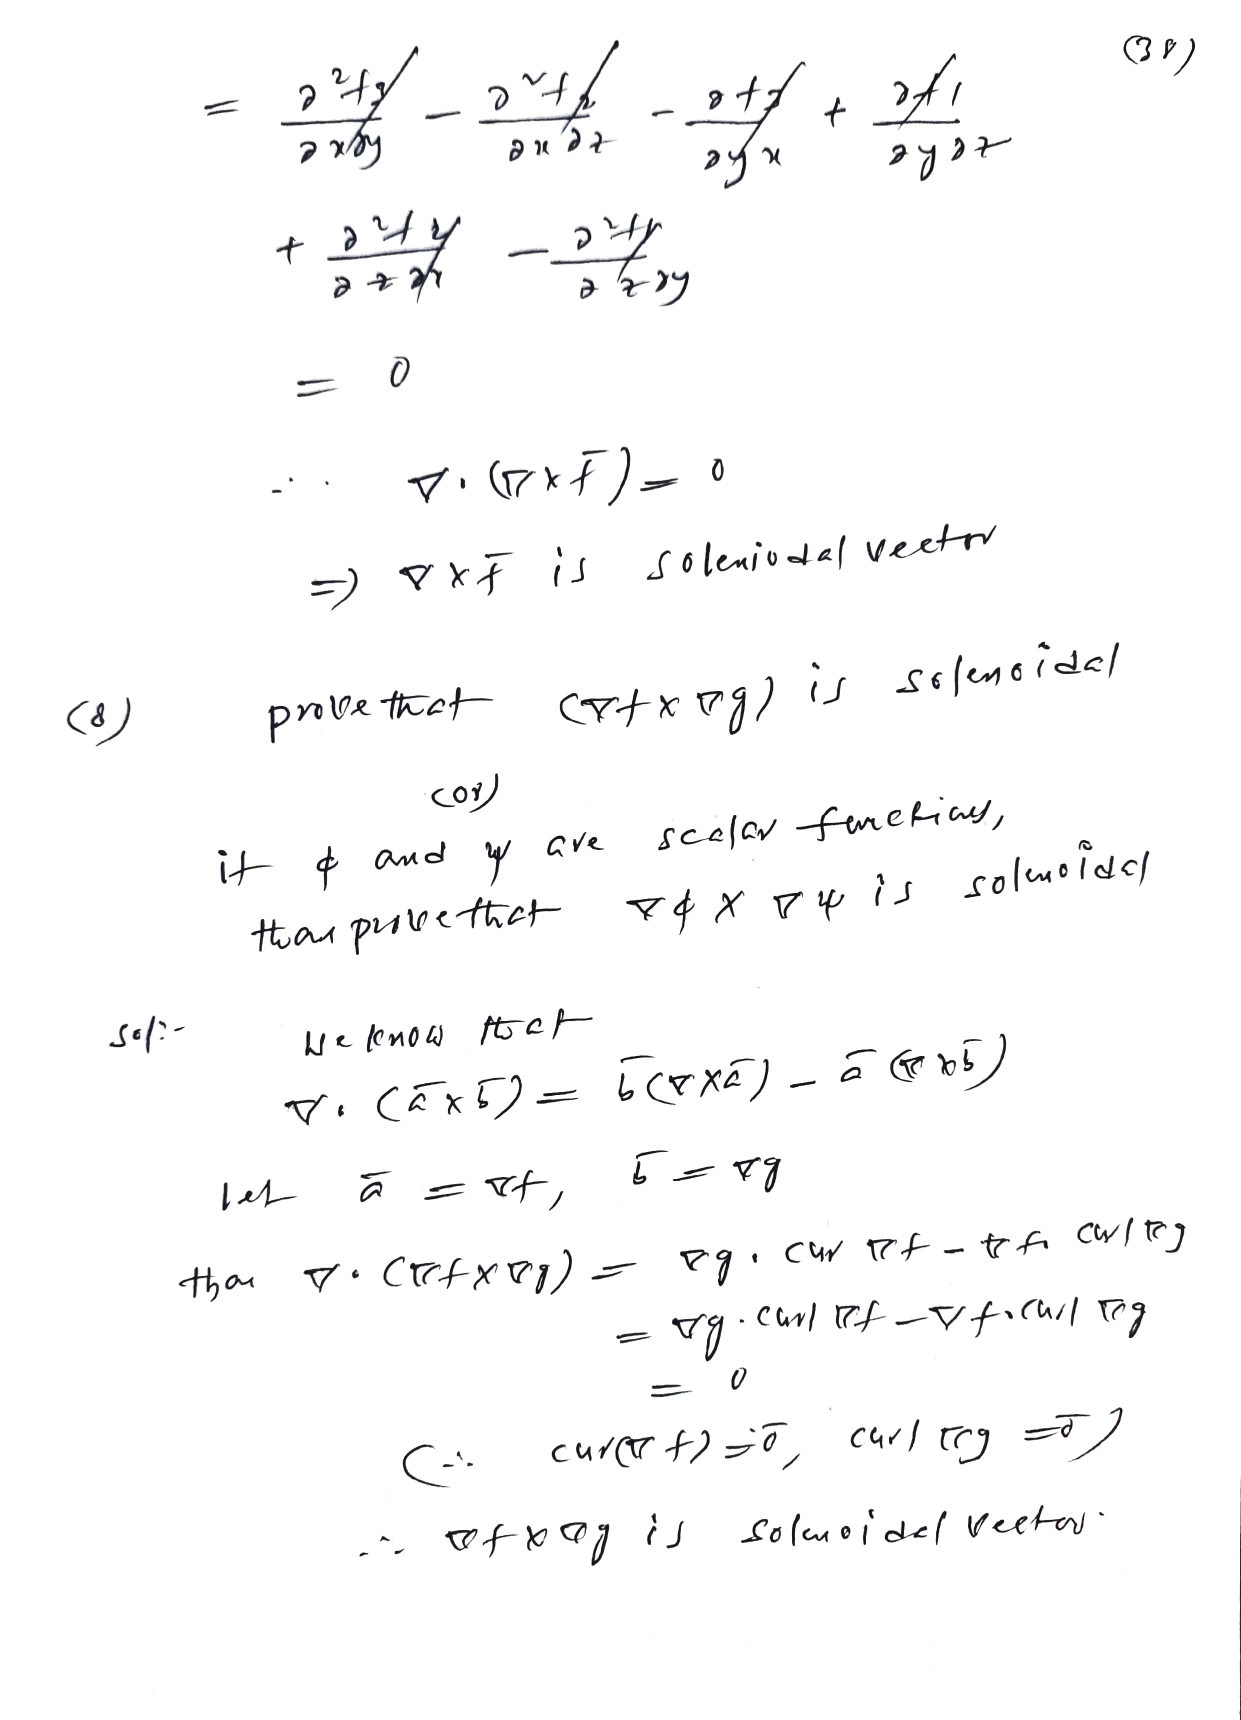 (38)
= ∂²f3/∂x∂y − ∂²f2/∂x∂z − ∂f3/∂y x + ∂f1/∂y∂z
+ ∂²f2/∂z∂x − ∂²f1/∂z∂y
= 0
∴ ∇·(∇×f̄) = 0
⇒ ∇×f̄ is soleniodal vector
(8) prove that (∇f×∇g) is solenoidal
(or)
if ϕ and ψ are scalar functions,
than prove that ∇ϕ × ∇ψ is solenoidal
Sol:- We know that
∇·(ā×b̄) = b̄(∇×ā) − ā(∇×b̄)
let ā = ∇f, b̄ = ∇g
than ∇·(∇f×∇g) = ∇g· cur ∇f − ∇f· curl ∇g
= ∇g·curl ∇f − ∇f·curl ∇g
= 0
(∵ cur(∇f) = ō, curl ∇g = ō)
∴ ∇f×∇g is solenoidal vector.